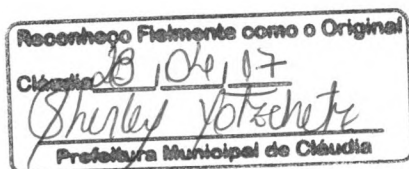 Reconheço Fielmente como o Original
Cláudia 28, 04, 17
Shirley
Prefeitura Municipal de Cláudia